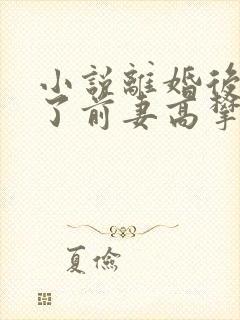 小说離婚後
了前妻高攀
夏儉